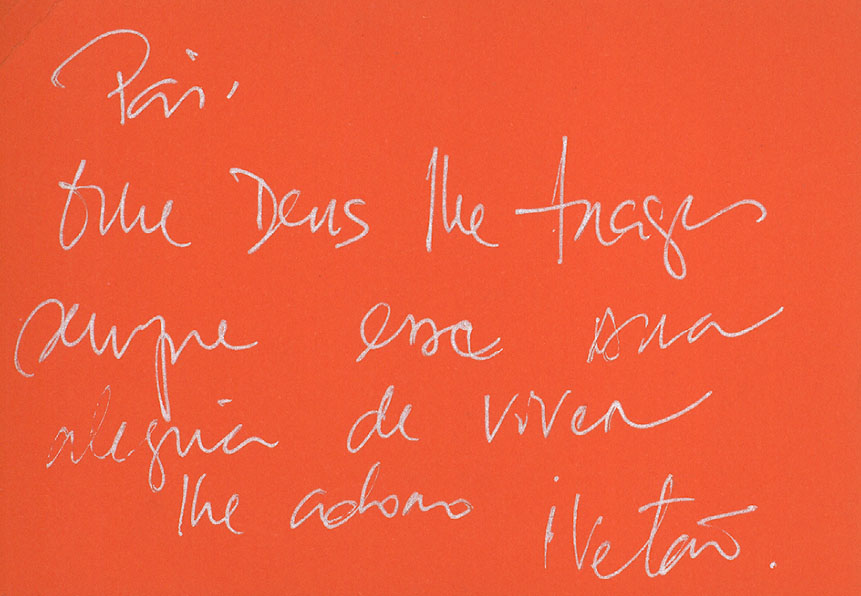 Pai,
que Deus lhe traga
sempre essa sua
alegria de viver
lhe adoro ivetão.